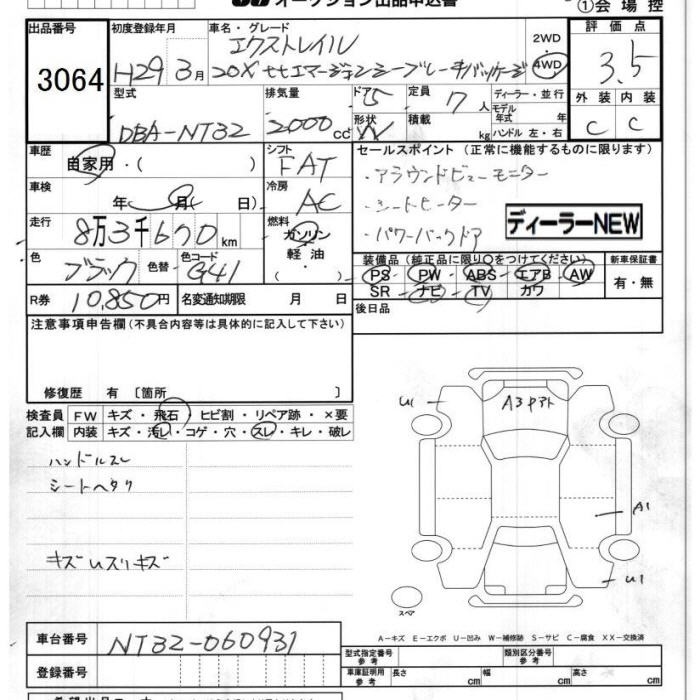 オークション出品申込書
①会場控
出品番号
3064
初度登録年月
H29 3月
車名・グレード
エクストレイル
20X ttエマージェンシーブレーキパッケージ
2WD
4WD
評価点
3.5
外装 内装
C C
型式
DBA-NT32
排気量
2000cc
ドア 5
形状 W
定員 7人
積載 kg
ディーラー・並行
モデル年式 年
ハンドル 左・右
車歴
自家用・( )
車検
年 月( 日)
走行
8万3千670km
色
ブラック
色替
色コード
G41
シフト
FAT
冷房
AC
燃料
ガソリン
軽油
・( )
セールスポイント (正常に機能するものに限ります)
・アラウンドビューモニター
・シートヒーター
・パワーバックドア
ディーラーNEW
装備品 (純正品に限り○をつけてください)
PS PW ABS エアB AW
SR ナビ TV カワ
新車保証書
有・無
R券
10,850円
名変通知期限 月 日
後日品
注意事項申告欄 (不具合内容等は具体的に記入して下さい)
修復歴 有 〔箇所 〕
検査員記入欄
FW キズ・飛石・ヒビ割・リペア跡・×要
内装 キズ・汚レ・コゲ・穴・スレ・キレ・破レ
ハンドルスレ
シートヘタリ
キズUスリキズ
U1
A3Pアト
A1
U1
スペア
A-キズ E-エクボ U-凹み W-補修跡 S-サビ C-腐食 XX-交換済
車台番号
NT32-060931
登録番号
型式指定番号 参考
類別区分番号 参考
車庫証明用 参考
長さ cm
幅 cm
高さ cm